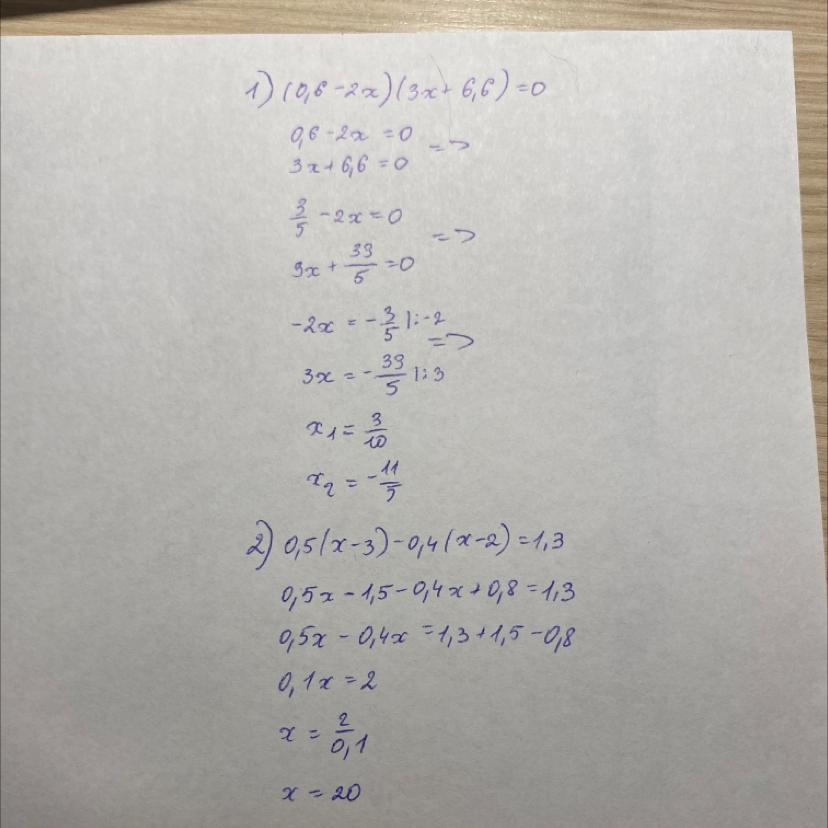 1) (0,6-2x)(3x+6,6)=0
0,6-2x=0
=>
3x+6,6=0
3/5 -2x=0
=>
3x+ 33/5 =0
-2x = - 3/5 |:-2
=>
3x = - 33/5 |:3
x1 = 3/10
x2 = - 11/5
2) 0,5(x-3)-0,4(x-2)=1,3
0,5x-1,5-0,4x+0,8=1,3
0,5x-0,4x=1,3+1,5-0,8
0,1x=2
x = 2/0,1
x = 20